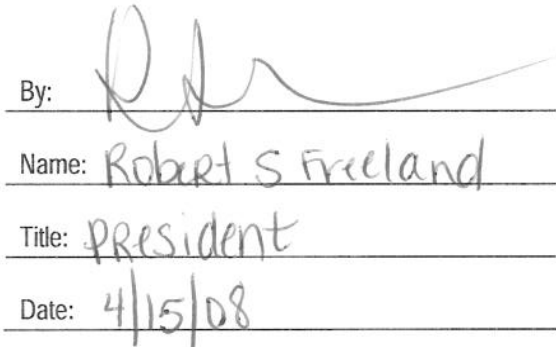 By:
Name: Robert S Freeland
Title: President
Date: 4/15/08